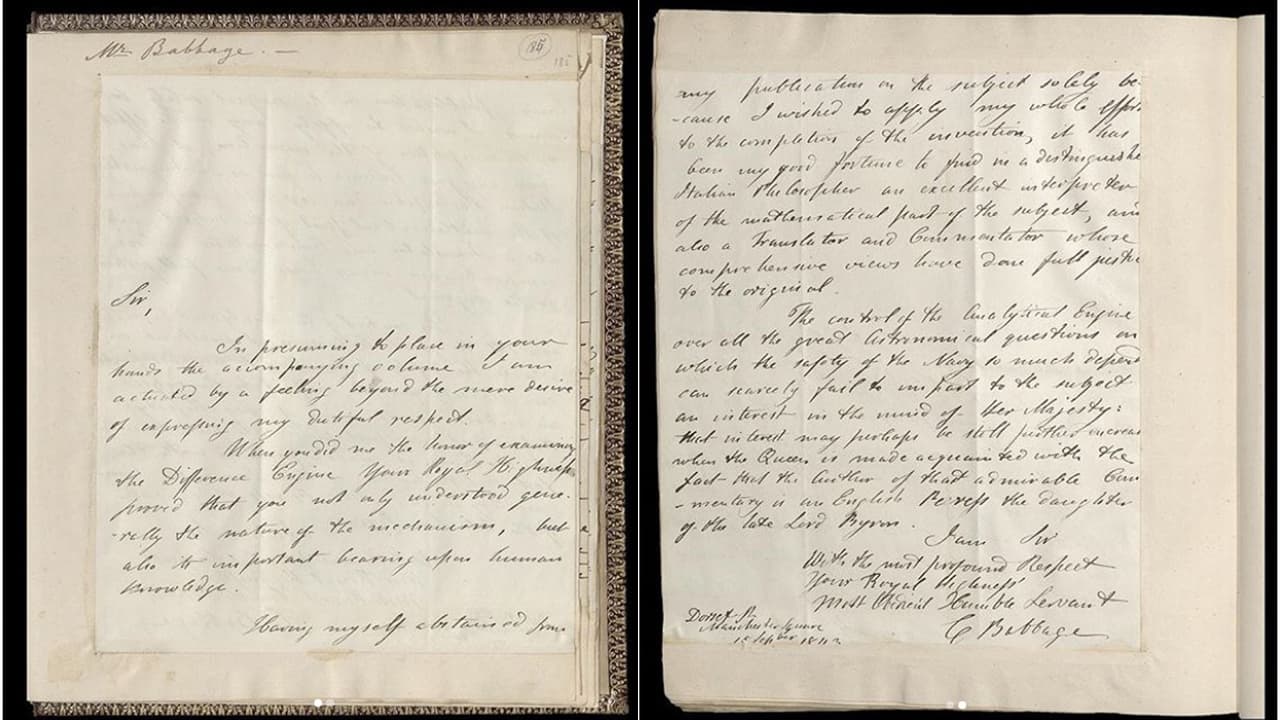 Mr Babbage. —
185
185
Sir,
In presuming to place in your
hands the accompanying volume I am
actuated by a feeling beyond the mere desire
of expressing my dutiful respect.
When you did me the honor of examining
the Difference Engine Your Royal Highness
proved that you not only understood gene-
-rally the nature of the mechanism, but
also its important bearing upon human
knowledge.
Having myself abstained from
my publication on the subject solely be-
-cause I wished to apply my whole effort
to the completion of the invention, it has
been my good fortune to find in a distinguishe
Italian Philosopher an excellent interpreter
of the mathematical part of the subject, and
also a Translator and Commentator whose
comprehensive views have done full justice
to the original.
The control of the Analytical Engine
over all the great Astronomical questions on
which the safety of the Navy so much depend
can scarcely fail to impart to the subject
an interest in the mind of Her Majesty:
that interest may perhaps be still further increas
when the Queen is made acquainted with the
fact that the Author of that admirable Com
-mentary is an English Peeress the daughter
of the late Lord Byron.
I am Sir
With the most profound Respect
Your Royal Highness'
Most Obedient Humble Servant
C Babbage
Dorset St
Manchester Square
1843